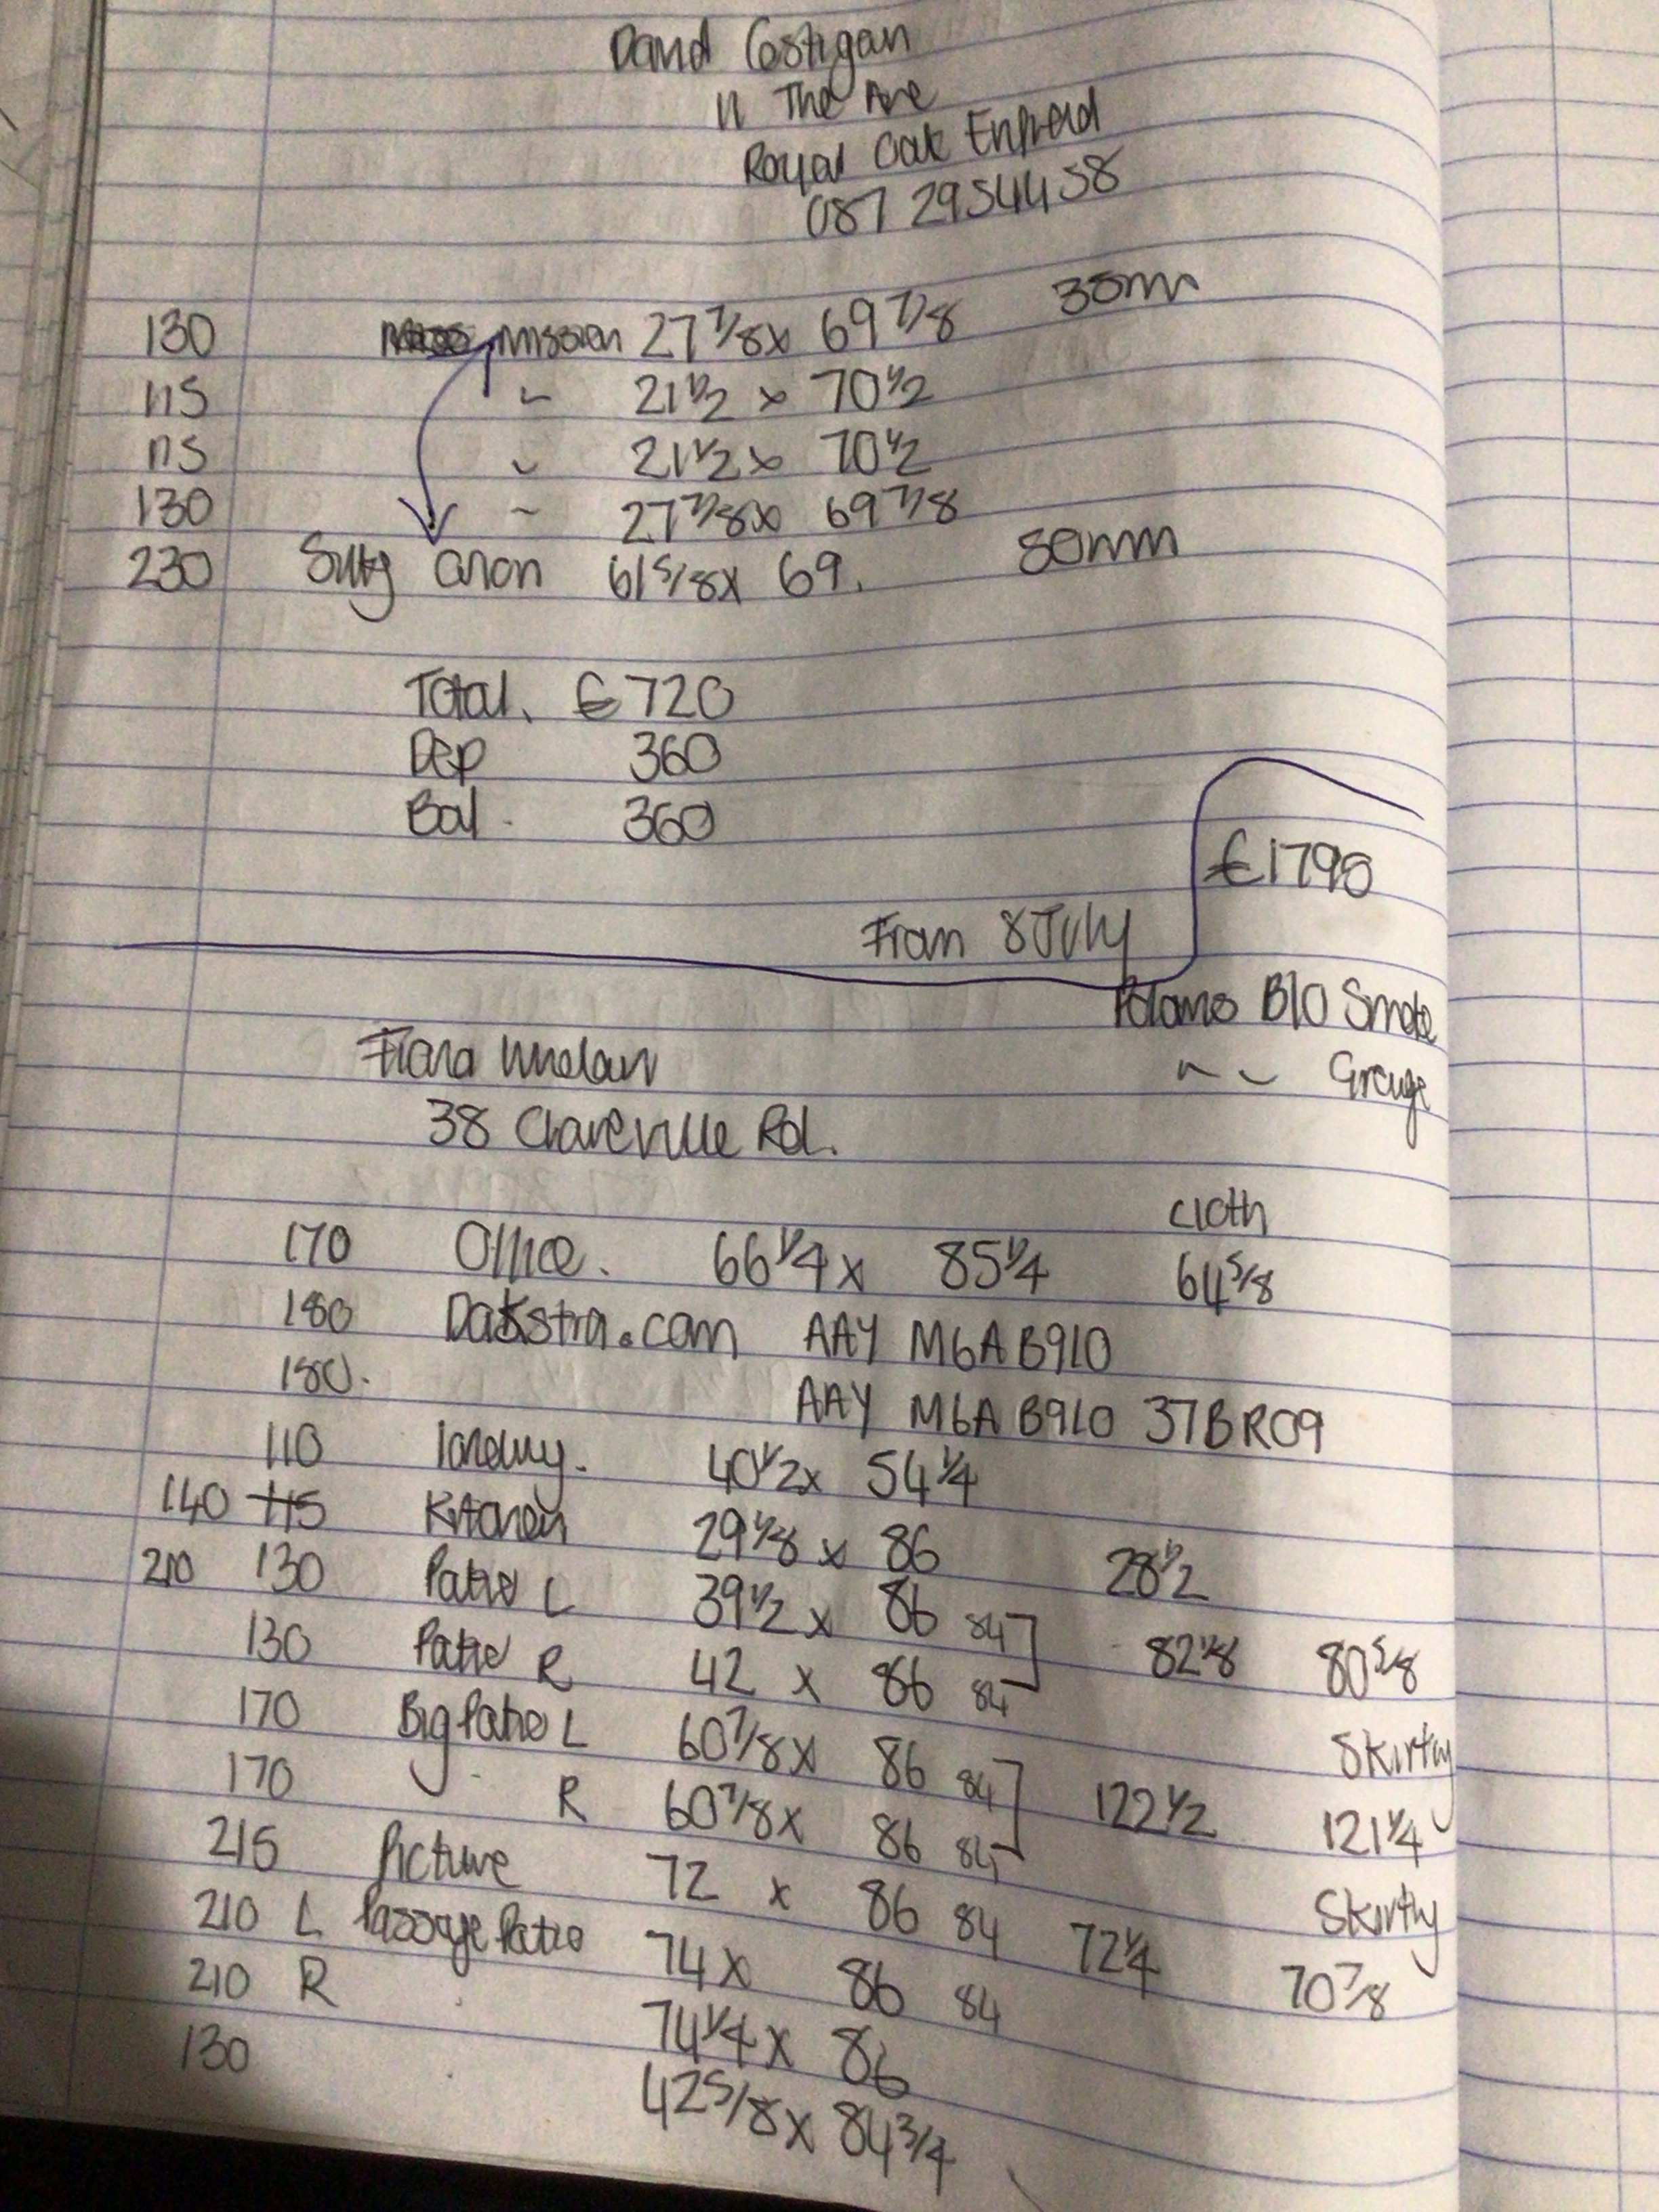 David Costigan
11 The Ave
Royal Oak Enfield
087 2954458
130 Mission 27 7/8 x 69 7/8 35mm
115 " 21 1/2 x 70 1/2
115 " 21 1/2 x 70 1/2
130 ~ 27 7/8 x 69 7/8
230 61 5/8 x 69. 50mm
Total. €720
Dep 360
Bal. 360
€1790
From 8 July
Polomo B10 Smoke
~ ~ Greige
Fiona Whelan
38 Clareville Rd.
cloth
170 Office. 66 1/4 x 85 1/4 64 5/8
180 Dakstra.com AAY M6A B910
180. AAY M6A B910 37BR09
110 40 1/2 x 54 1/4
140 115 Kitchen 29 1/8 x 86 28 1/2
210 130 Patio L 39 1/2 x 86 84
130 Patio R 42 x 86 84 82 1/8 80 5/8
170 Big Patio L 60 7/8 x 86 84 Skirting
170 R 60 7/8 x 86 84 122 1/2 121 1/4
215 Picture 72 x 86 84 72 1/4 Skirting
210 L Passage Patio 74 x 86 84 70 7/8
210 R 74 1/4 x 86
130 42 5/8 x 84 3/4